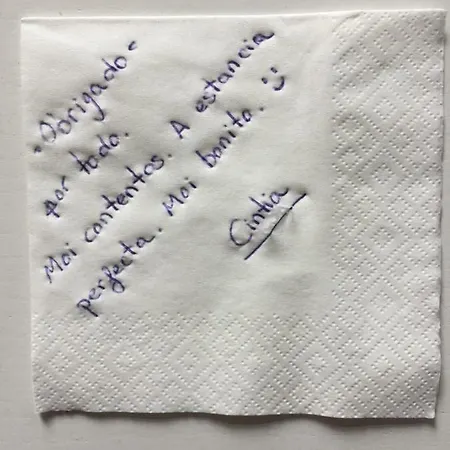 "Obrigado"
por todo.
Moi contentos. A estancia
perfecta. Moi bonito. :)
Cintia